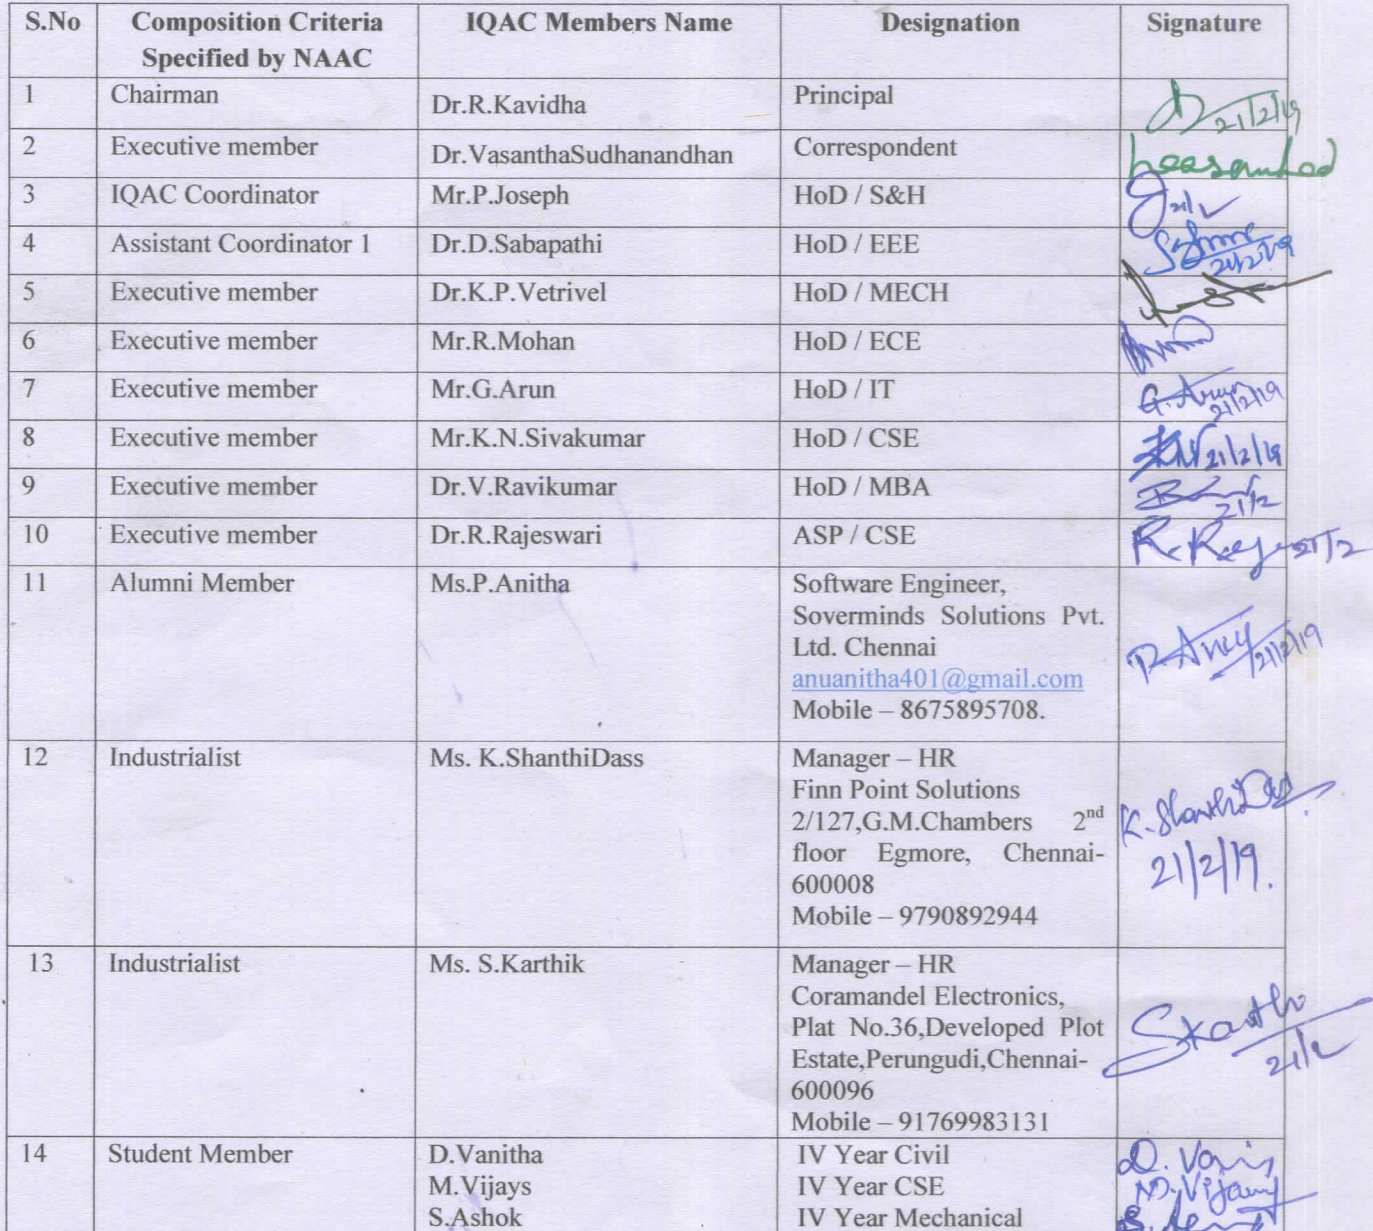 S.No Composition Criteria IQAC Members Name Designation Signature
Specified by NAAC
1 Chairman Dr.R.Kavidha Principal 21/2/19
2 Executive member Dr.VasanthaSudhanandhan Correspondent
3 IQAC Coordinator Mr.P.Joseph HoD / S&H
4 Assistant Coordinator 1 Dr.D.Sabapathi HoD / EEE 21/2/19
5 Executive member Dr.K.P.Vetrivel HoD / MECH
6 Executive member Mr.R.Mohan HoD / ECE
7 Executive member Mr.G.Arun HoD / IT G. Arun 21/2/19
8 Executive member Mr.K.N.Sivakumar HoD / CSE 21/2/19
9 Executive member Dr.V.Ravikumar HoD / MBA 21/2
10 Executive member Dr.R.Rajeswari ASP / CSE 21/2
11 Alumni Member Ms.P.Anitha Software Engineer,
Soverminds Solutions Pvt.
Ltd. Chennai
anuanitha401@gmail.com 21/2/19
Mobile – 8675895708.
12 Industrialist Ms. K.ShanthiDass Manager – HR
Finn Point Solutions
2/127,G.M.Chambers 2nd K.ShanthiDass
floor Egmore, Chennai-
600008 21/2/19.
Mobile – 9790892944
13 Industrialist Ms. S.Karthik Manager – HR
Coramandel Electronics,
Plat No.36,Developed Plot
Estate,Perungudi,Chennai-
600096 21/2
Mobile – 91769983131
14 Student Member D.Vanitha IV Year Civil
M.Vijays IV Year CSE
S.Ashok IV Year Mechanical